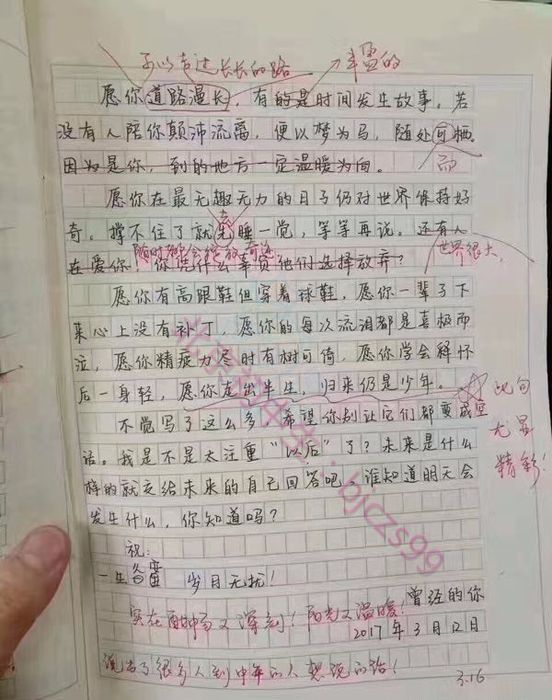 可以走过长长的路 丰富的
愿你道路漫长，有的是时间发生故事。若
没有人陪你颠沛流离，便以梦为马，随处可栖。
因为是你，到的地方一定温暖为向。 而
愿你在最无趣无力的日子仍对世界保持好
奇。撑不住了就先睡一觉，等等再说。还有人
世界很大，
在爱你！你凭什么辜负他们选择放弃？
愿你有高跟鞋但穿着球鞋，愿你一辈子下
来心上没有补丁，愿你的每次流泪都是喜极而
泣，愿你精疲力尽时有树可倚，愿你学会释怀
后一身轻，愿你走出半生，归来仍是少年。 此句
不觉写了这么多，希望你别让它们都变成空 尤显
话。我是不是太注重“以后”了？未来是什么 精彩！
样的就交给未来的自己回答吧。谁知道明天会
发生什么，你知道吗？
祝：
一生 岁月无扰！
实在 又深刻！阳光又温暖！ 曾经的你
2017年3月12日
说出了很多人到中年的人想说的话！ 3.16
bjczs99